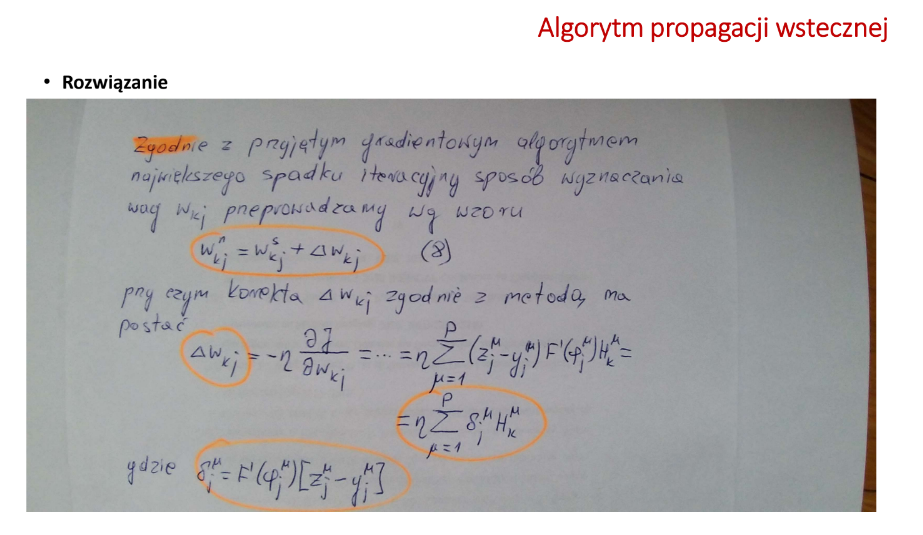 Algorytm propagacji wstecznej
• Rozwiązanie
Zgodnie z przyjętym gradientowym algorytmem
największego spadku iteracyjny sposób wyznaczania
wag w_{kj} przeprowadzamy wg wzoru
w_{kj}^{n} = w_{kj}^{s} + Δw_{kj} (8)
przy czym korekta Δw_{kj} zgodnie z metodą, ma
postać
Δw_{kj} = -η ∂J/∂w_{kj} = ... = η Σ_{μ=1}^{P} (z_j^μ - y_j^μ) F'(φ_j^μ) H_k^μ =
= η Σ_{μ=1}^{P} δ_j^μ H_k^μ
gdzie δ_j^μ = F'(φ_j^μ)[z_j^μ - y_j^μ]